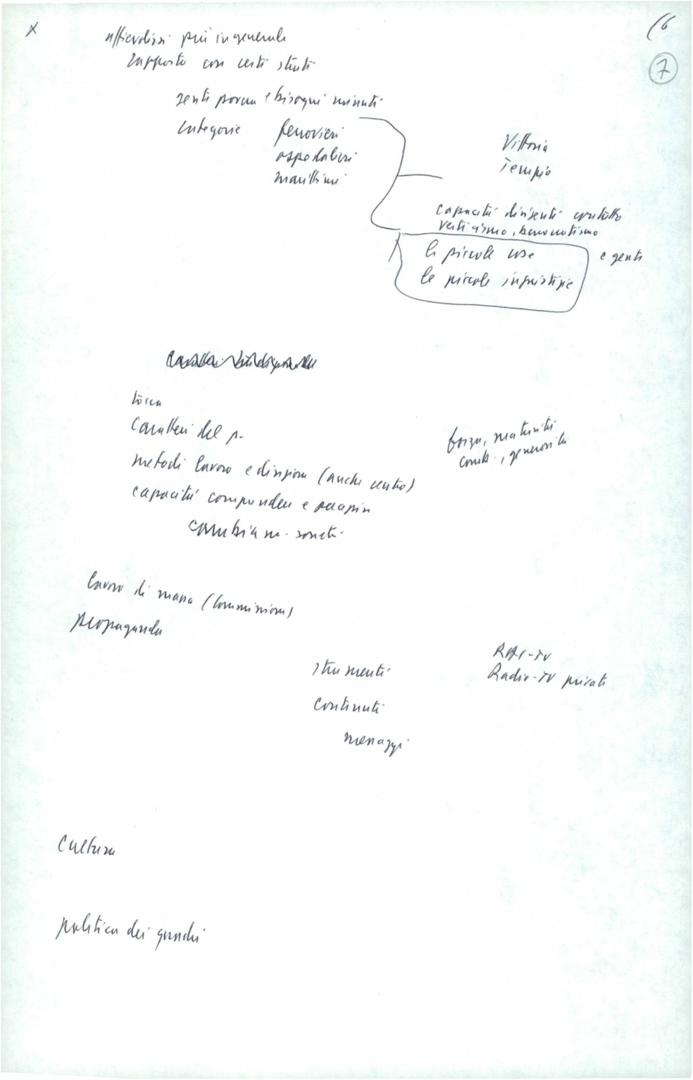 x
16
7
affievolirsi più in generale
rapporto con certi strati
gente povera e bisogni minuti
categorie ferrovieri
ospedalieri
marittimi
Vittoria
Tempio
capacità dirigenti contatto
verticismo, burocratismo
le piccole cose e gente
le piccole ingiustizie
Caratteri del p.
metodi lavoro e direzione (anche centro)
capacità comprendere e recepire
cambia m. società
forza, maturità
comb., generosità
lavoro di massa (commissioni)
propaganda
strumenti
contenuti
messaggi
RAI-TV
Radio-TV private
Cultura
politica dei quadri